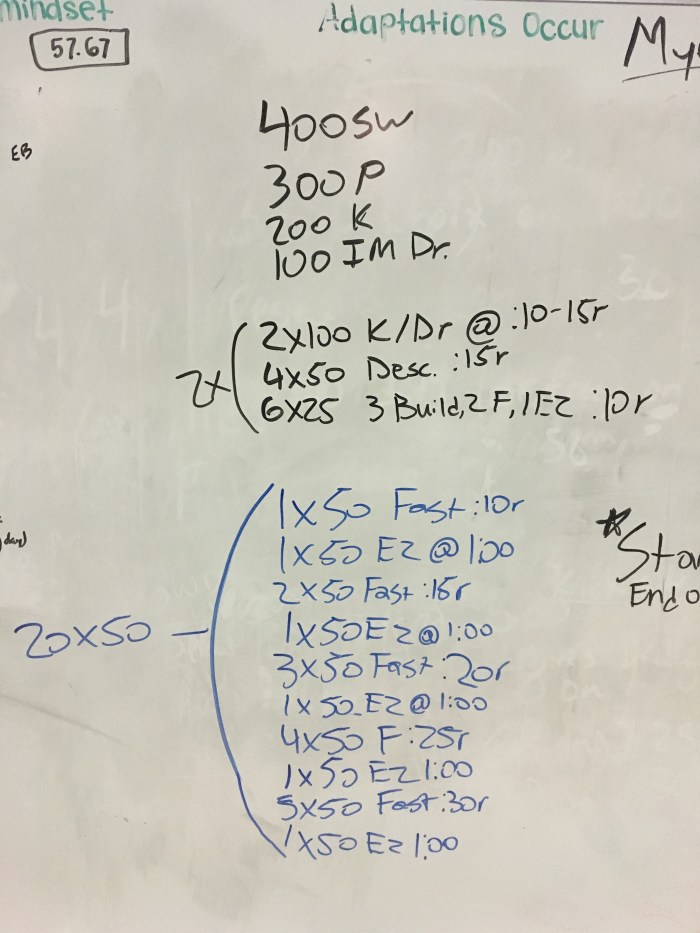 mindset
Adaptations Occur
57.67
EB
400 SW
300 P
200 K
100 IM Dr.
2x
2x100 K/Dr @ :10-15r
4x50 Desc. :15r
6x25 3 Build, 2 F, 1 EZ :10r
20x50
1x50 Fast :10r
1x50 EZ @ 1:00
2x50 Fast :15r
1x50 EZ @ 1:00
3x50 Fast :20r
1x50 EZ @ 1:00
4x50 F :25r
1x50 EZ 1:00
5x50 Fast :30r
1x50 EZ 1:00
day)
End o